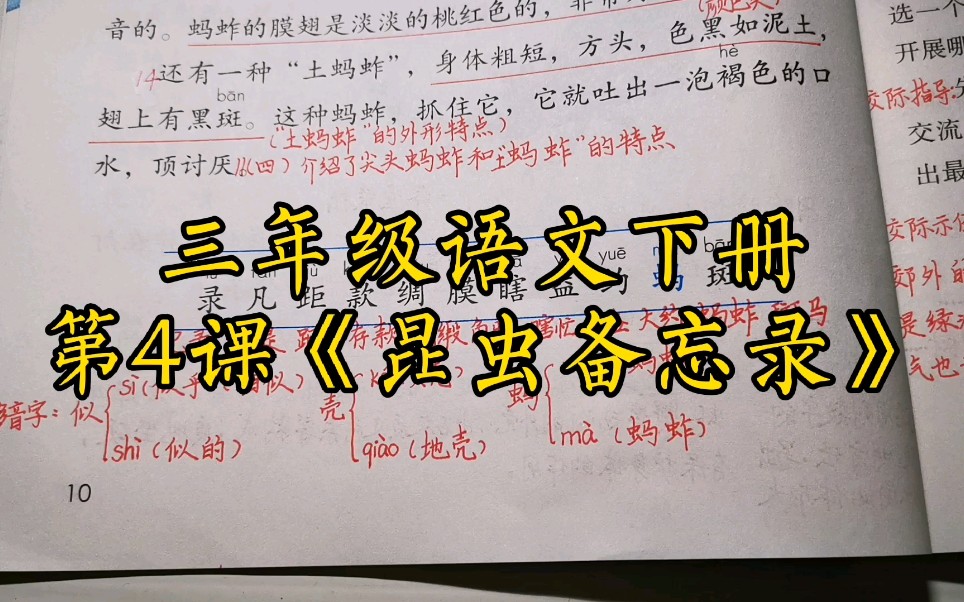 音的。蚂蚱的膜翅是淡淡的桃红色的，
14还有一种“土蚂蚱”，身体粗短，方头，色黑如泥土，
bān
hè
翅上有黑斑。这种蚂蚱，抓住它，它就吐出一泡褐色的口
(“土蚂蚱”的外形特点)
水，顶讨厌。
(四)介绍了尖头蚂蚱和“土蚂蚱”的特点
三年级语文下册
yuē
录 凡 距 款 绸 膜 瞎 斑
第4课《昆虫备忘录》
似
sì(似乎
shì(似的)
壳
qiào(地壳)
蚂
mà(蚂蚱)
10
选一个
开展哪
交际指导:
交流
出最
交际示
郊外的
是绿
气也